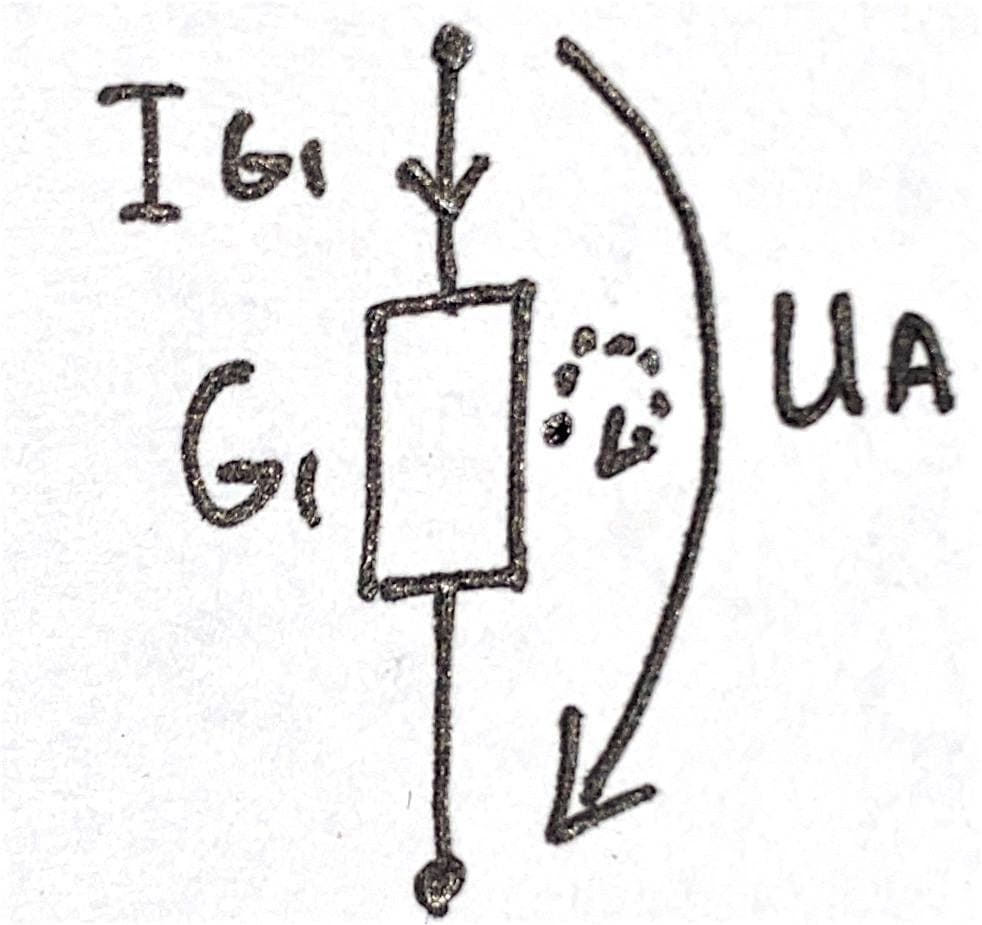 IG1
G1
UA